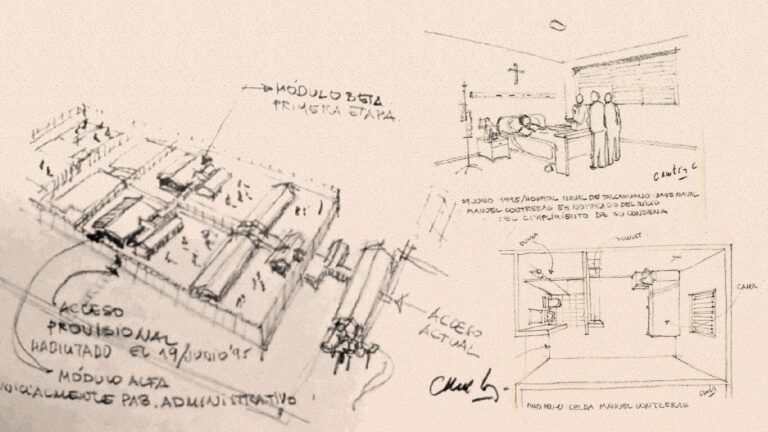 MÓDULO BETA
PRIMERA ETAPA
ACCESO
PROVISIONAL
HABILITADO EL 19/JUNIO'95
MÓDULO ALFA
INICIALMENTE PAB. ADMINISTRATIVO
ACCESO
ACTUAL
JUNIO 1995/HOSPITAL NAVAL DE TALCAHUANO - BASE NAVAL
MANUEL CONTRERAS ES NOTIFICADO DEL INICIO
DEL CUMPLIMIENTO DE SU CONDENA
DUCHA
CLOSET
CAMA
CELDA MANUEL CONTRERAS